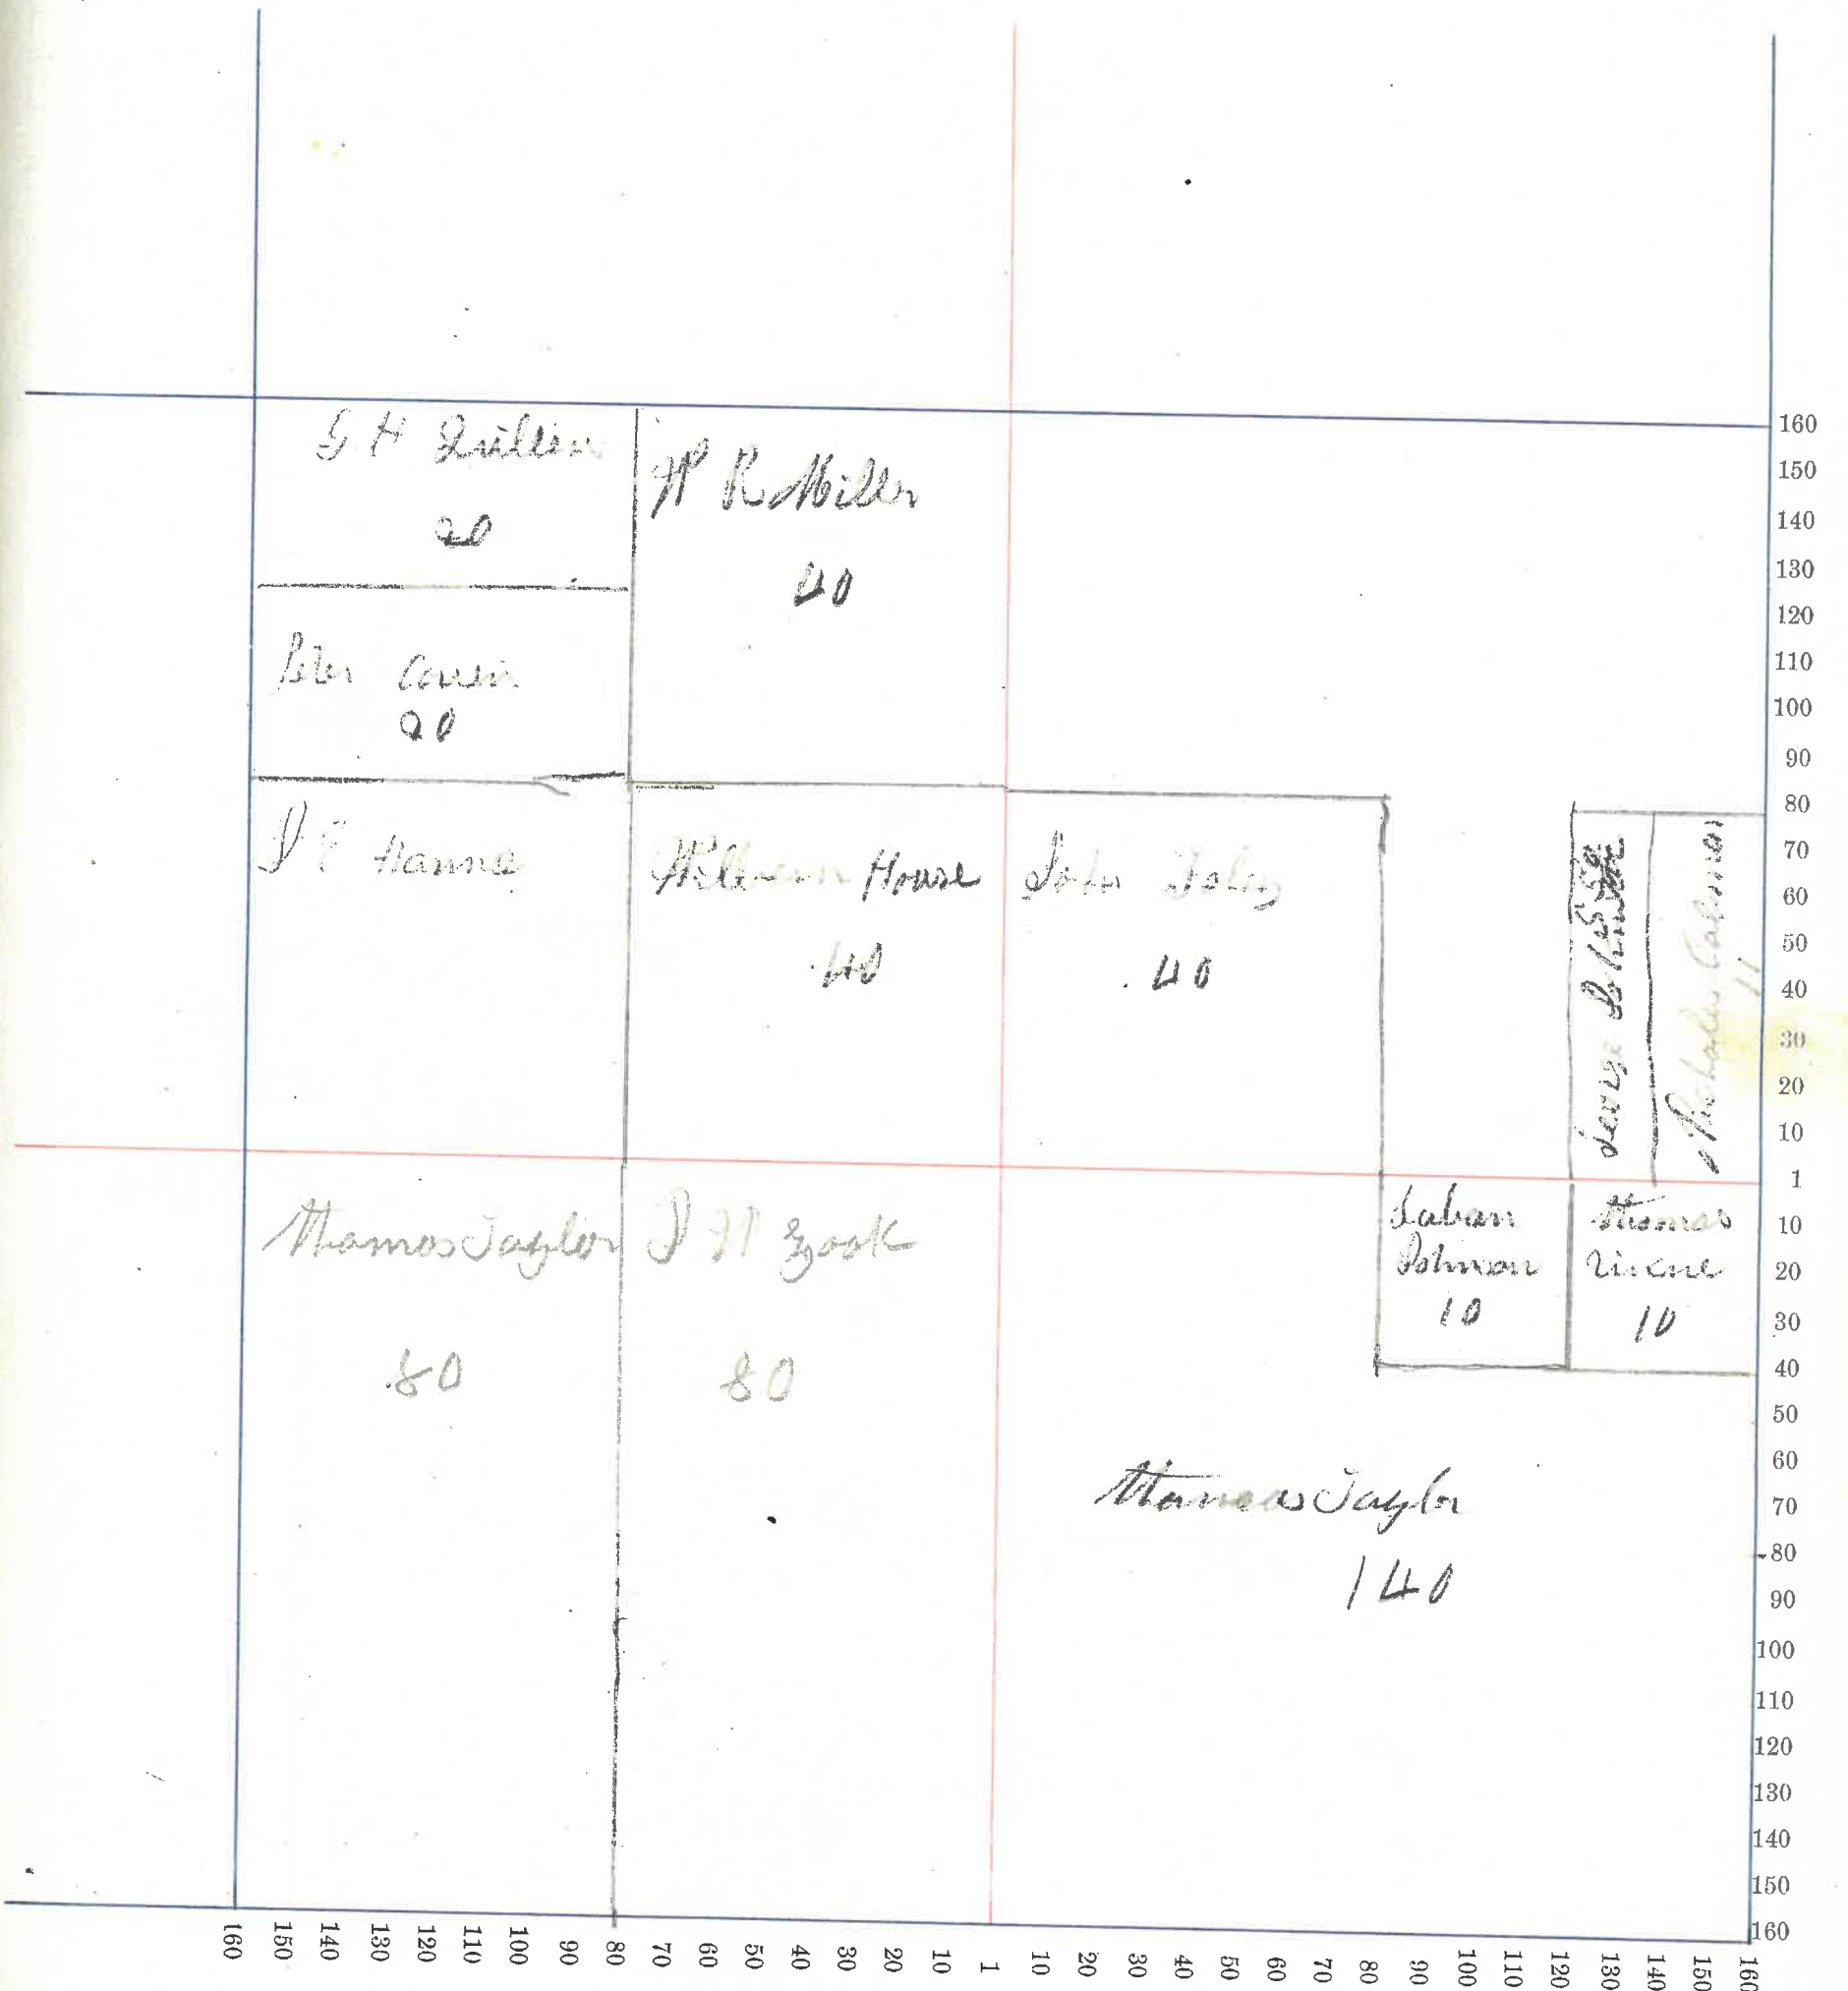 G H
20
W R Miller
40
Peter
20
Hanna
William House
40
John
40
George
Nicholas
11
Thomas Taylor
80
80
Laban
Johnson
10
Thomas
10
Thomas Taylor
140
160
150
140
130
120
110
100
90
80
70
60
50
40
30
20
10
1
10
20
30
40
50
60
70
80
90
100
110
120
130
140
150
160
160
150
140
130
120
110
100
90
80
70
60
50
40
30
20
10
1
10
20
30
40
50
60
70
80
90
100
110
120
130
140
150
160